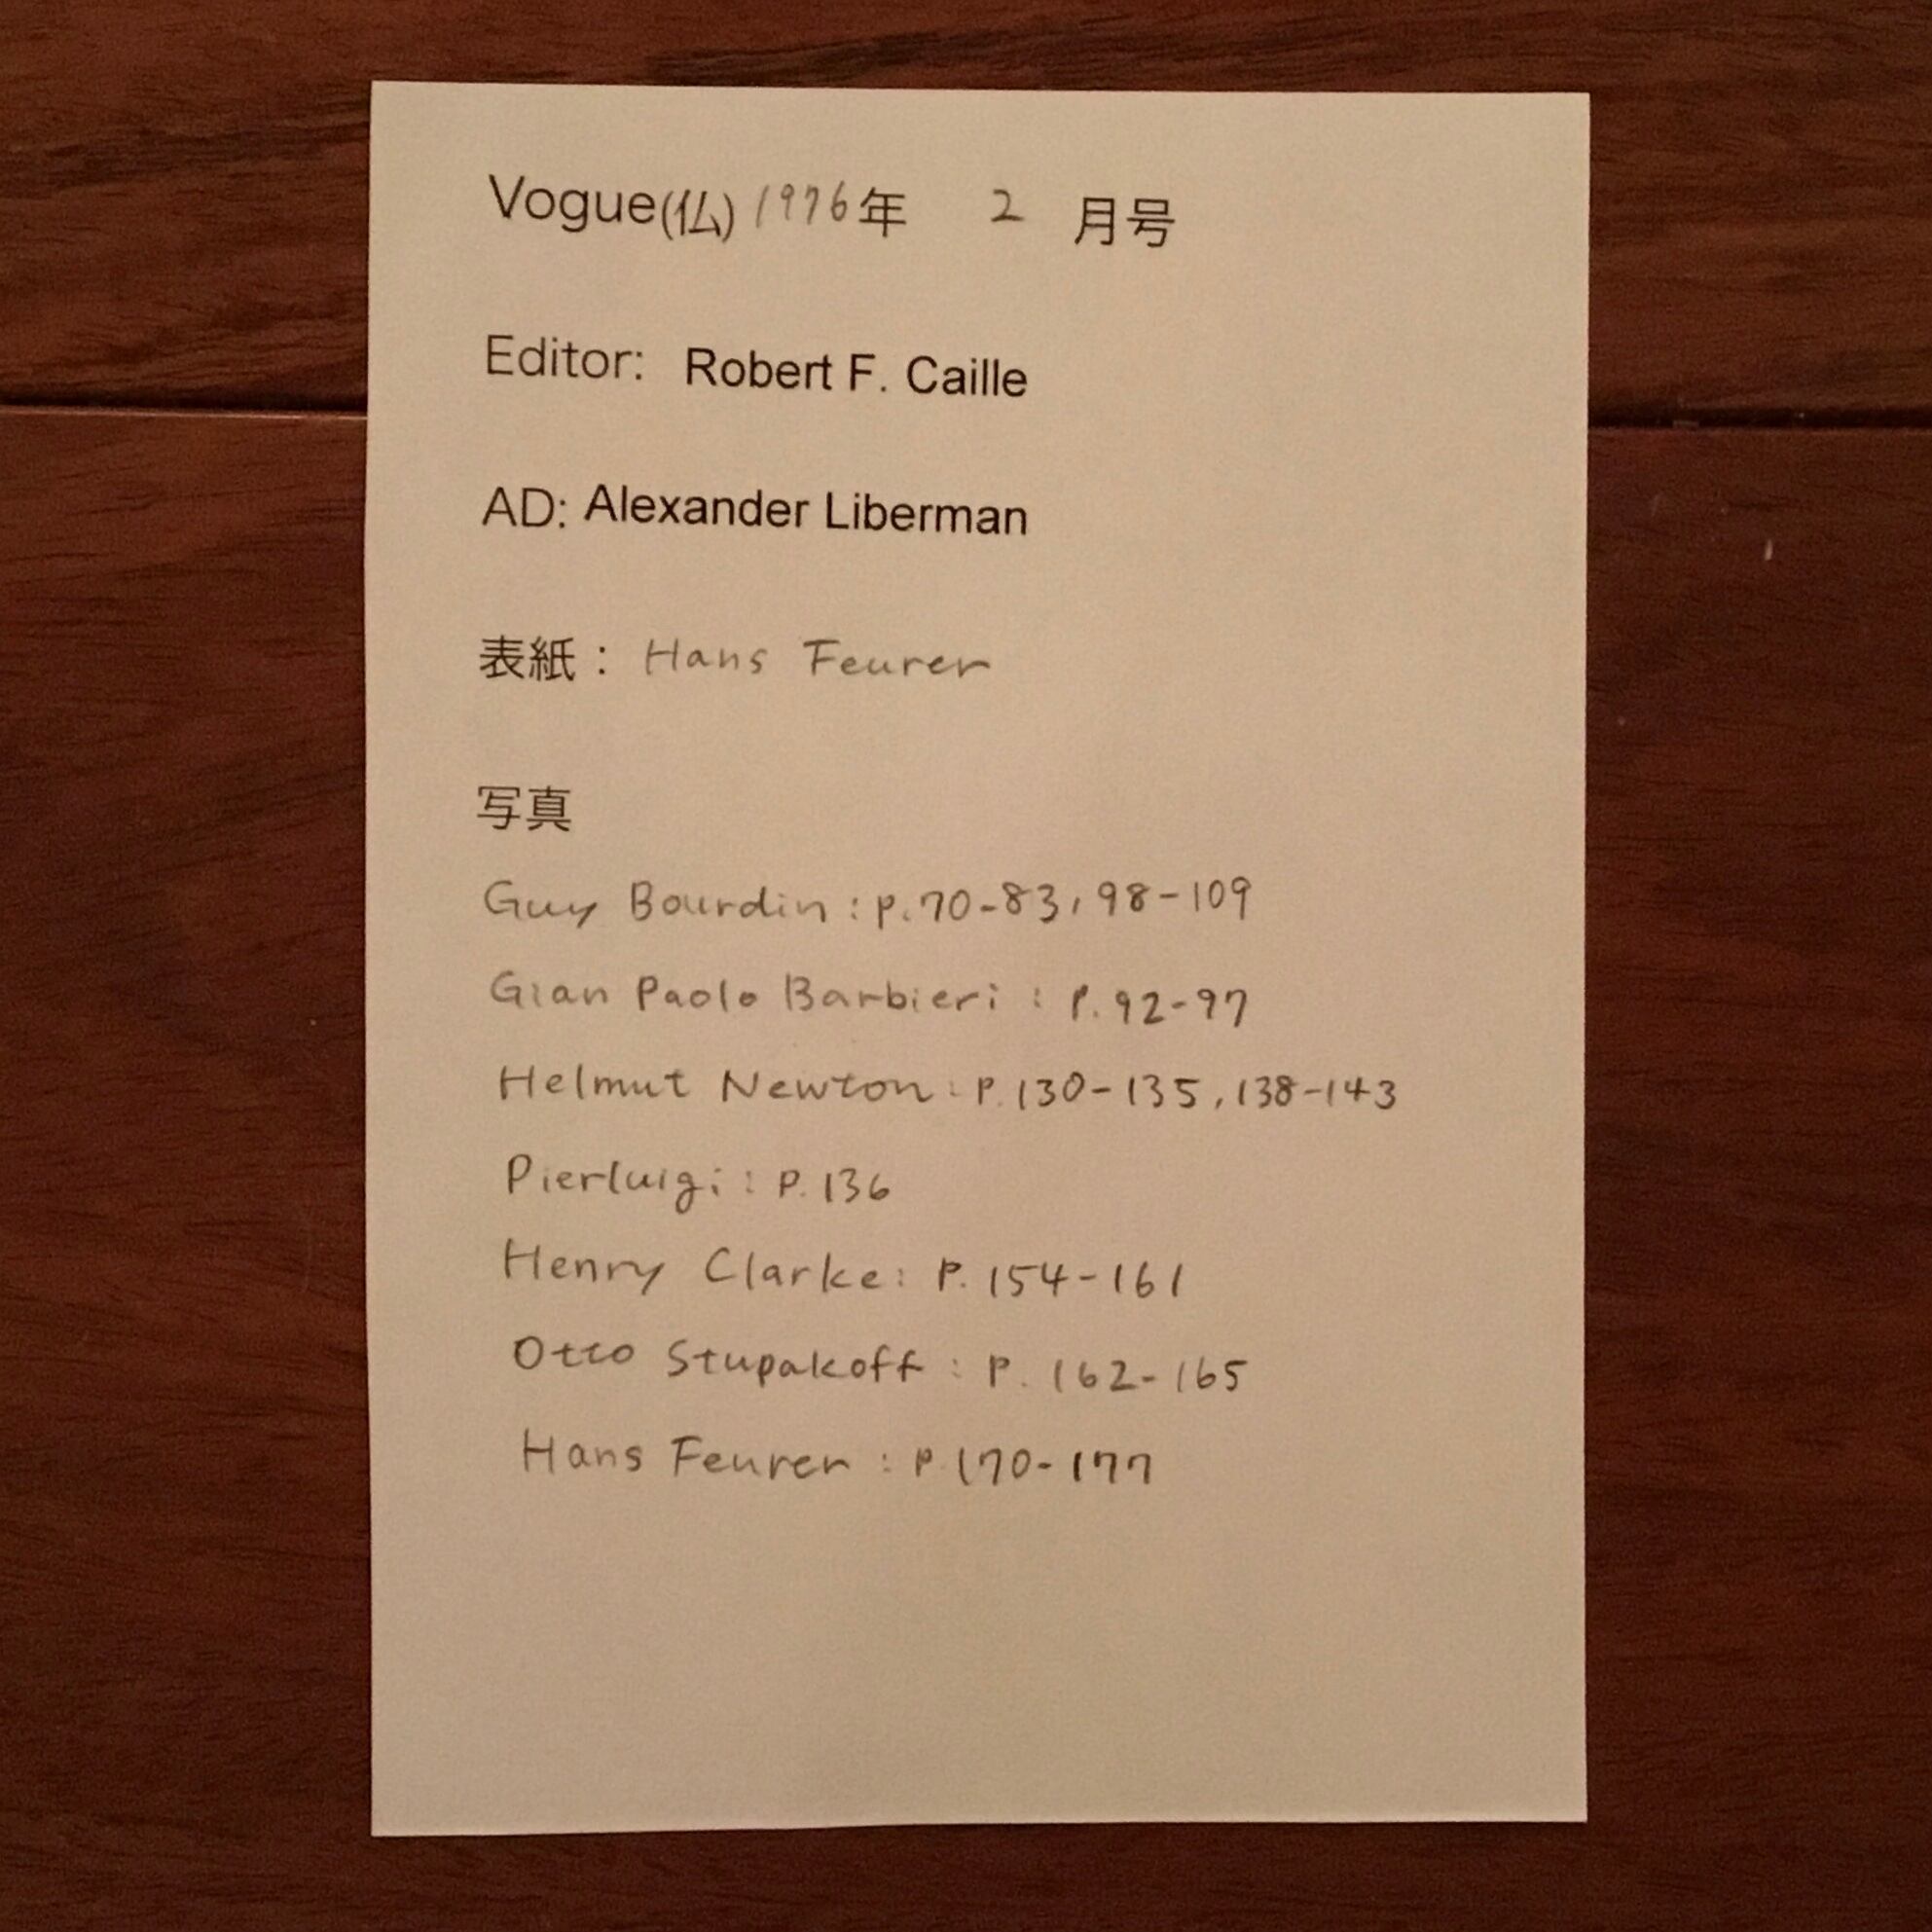 Vogue(仏) 1976年 2 月号
Editor: Robert F. Caille
AD: Alexander Liberman
表紙： Hans Feurer
写真
Guy Bourdin : p.70-83, 98-109
Gian Paolo Barbieri : P.92-97
Helmut Newton : P.130-135, 138-143
Pierluigi : P.136
Henry Clarke : P.154-161
Otto Stupakoff : P.162-165
Hans Feurer : P.170-177